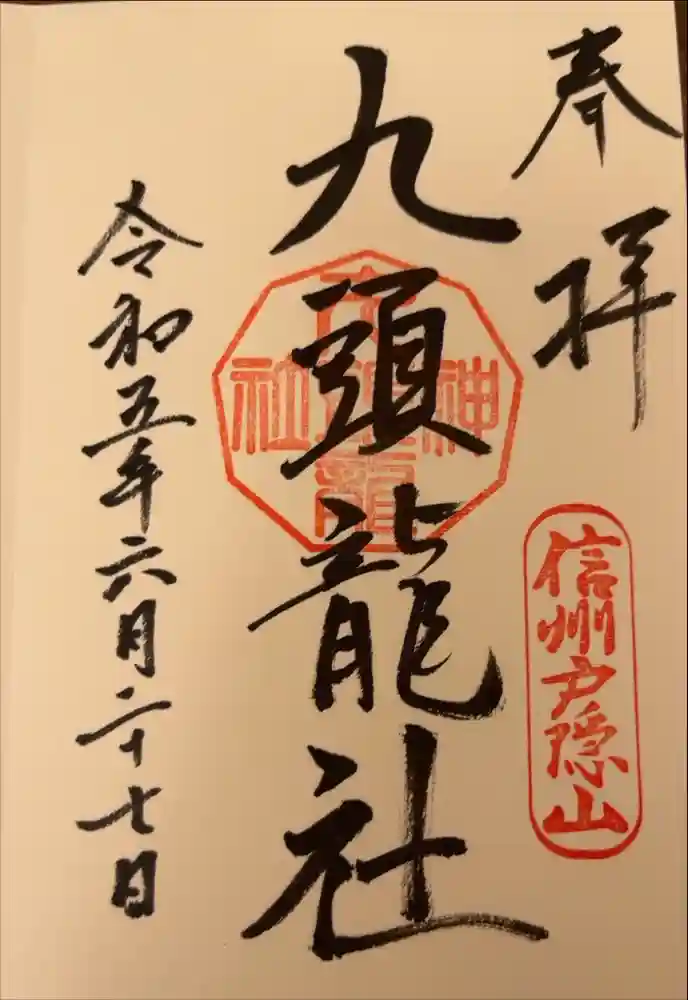 奉拝
信州戸隠山
九頭龍社
九頭龍
神
社
令和五年六月二十七日